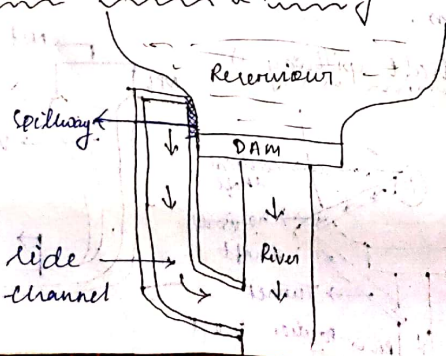 Reserviour
Spillway
DAM
River
Side
channel